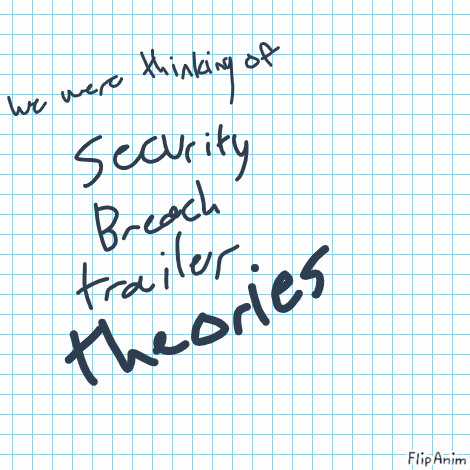 we were thinking of
Security
Breach
trailer
theories
FlipAnim